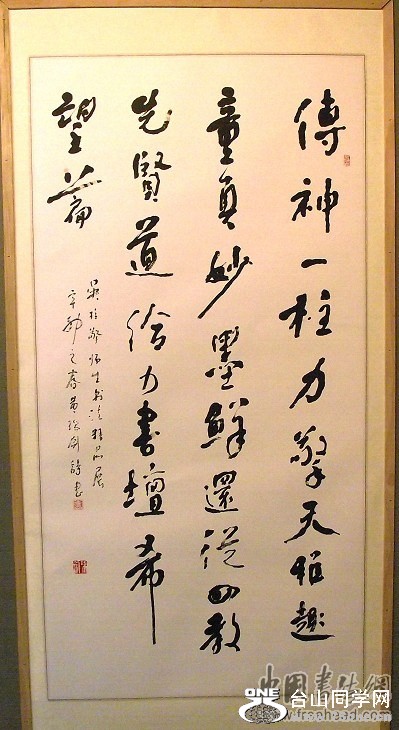 傳神一柱力擎天雅趣
童真妙墨鮮還從四教
先賢道給力書壇希
望篇
師生書法精品展
辛卯之春
詩書
中国书法网
ONE 台山同学网